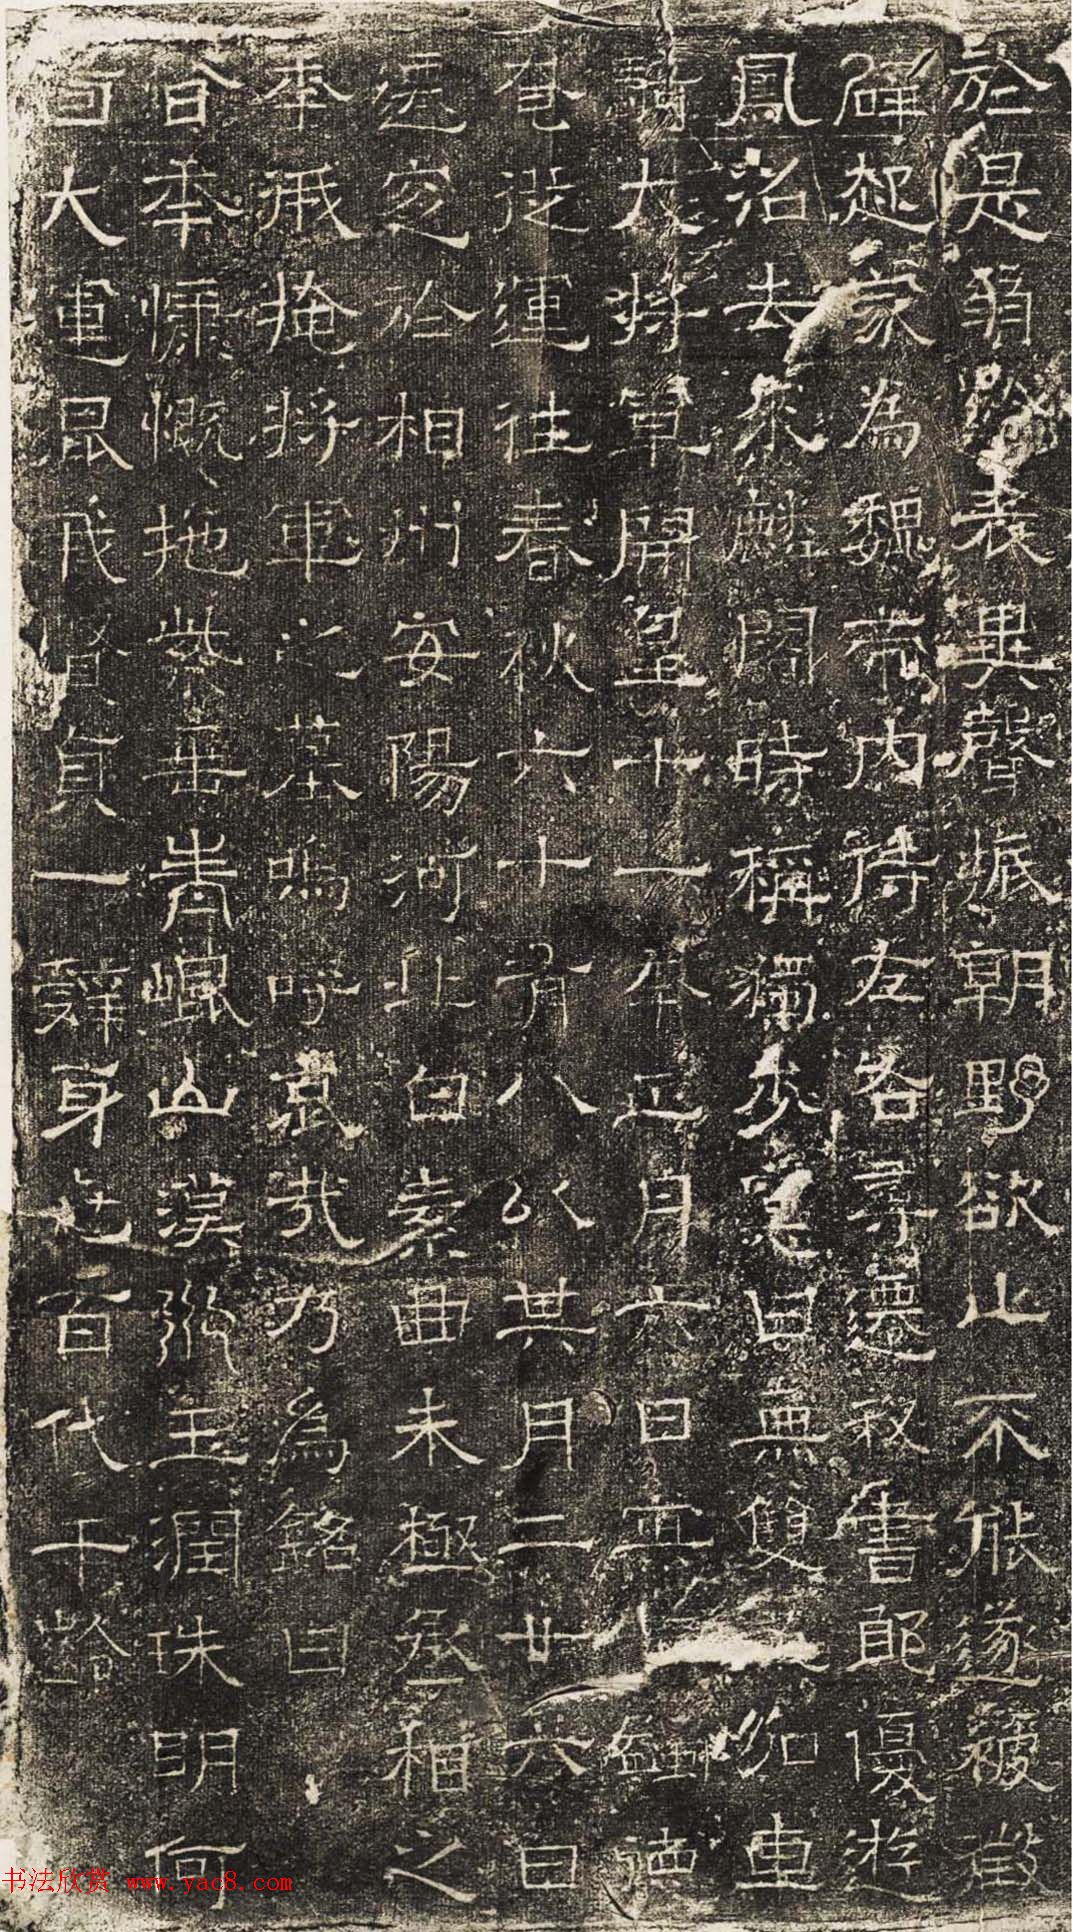 於是弱齡表異聲振朝野欲止不能遂被徵
辟起家為魏帝內侍左右尋遷秘書郎優遊
鳳沼去來麟閣時稱獨步寔曰無雙加車
騎大將軍開皇十一年正月六日
奄從運往春秋六十有八以其月二廿六日
遷窆於相州安陽河北白素曲未極丞相之
年俄掩將軍之墓嗚呼哀哉乃為銘曰
昔年慷慨拖紫垂青崐山漢水玉潤珠明何
言大運艮我賢貞一辭身世百代千齡
书法欣赏 www.yac8.com